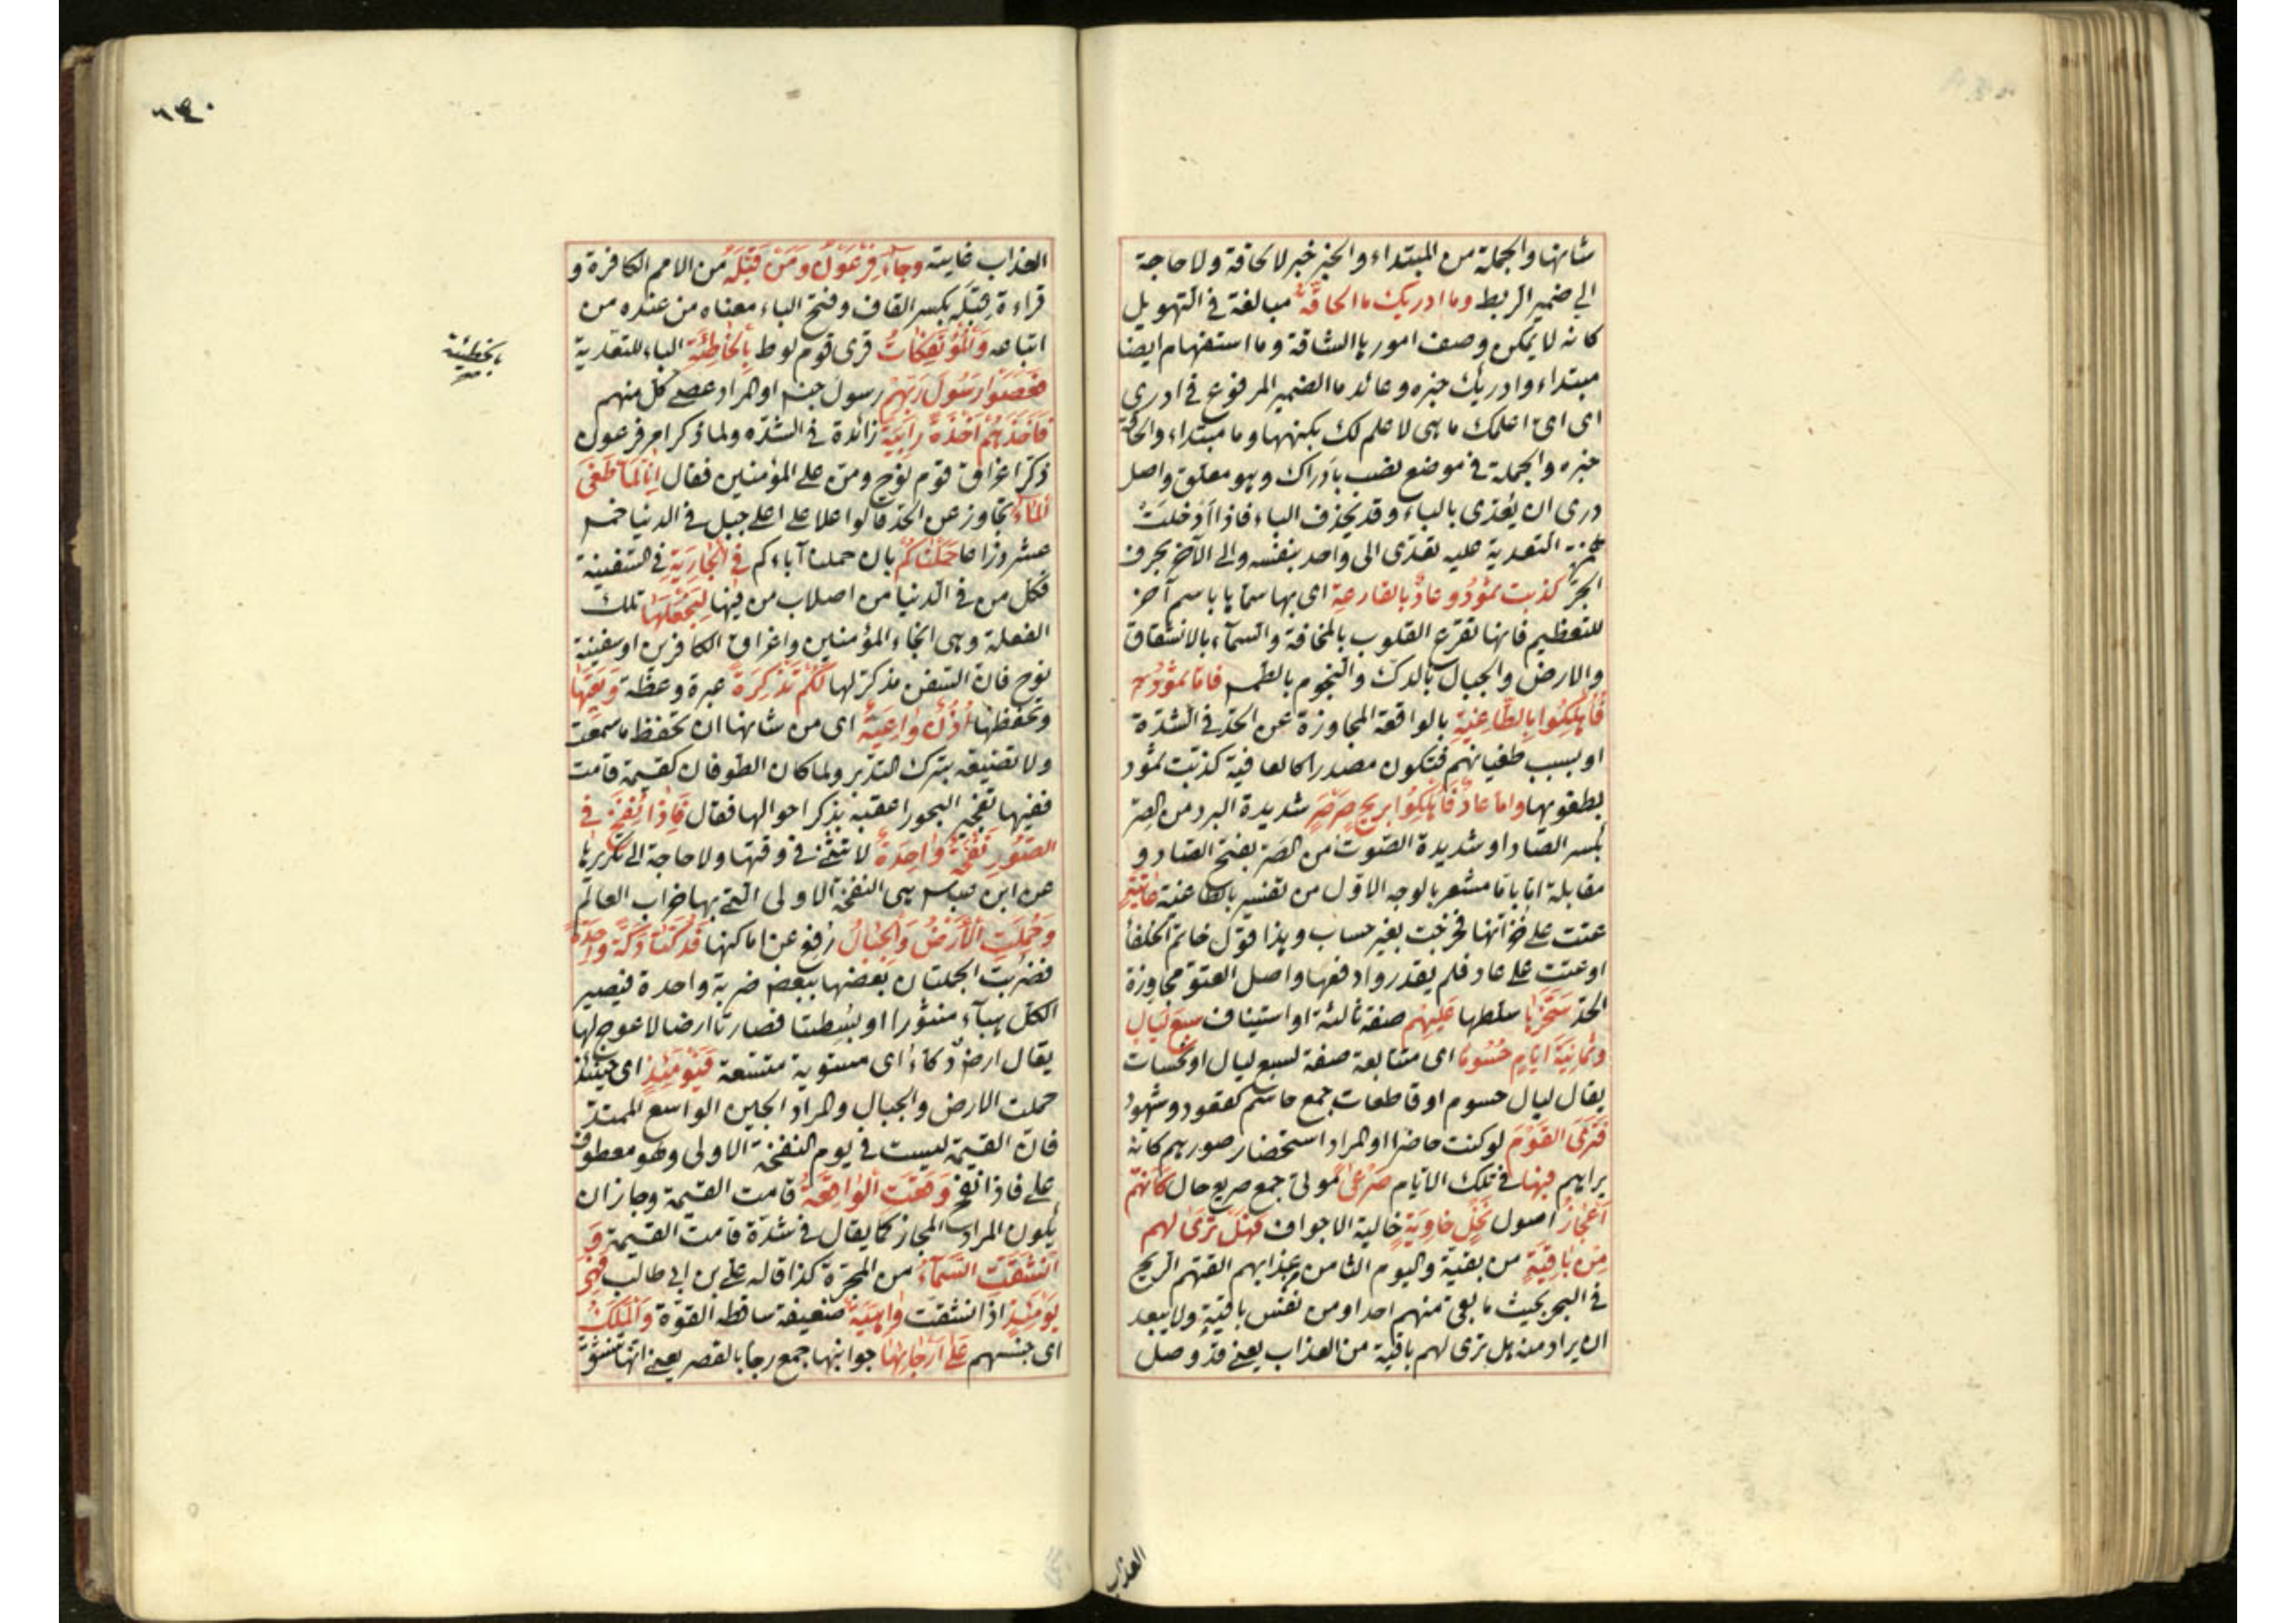 شانها والجملة من المبتداء والخبر خبر لالحاقة ولا حاجة
الى ضمير الربط وما ادريك ما الحاقّة مبالغة في التهويل
كانه لا يمكن وصف امورها الشاقة وما استفهام ايضا
مبتداء وادريك خبره وعائد ما الضمير المرفوع في ادرى
اى اىّ اعلمك ما هى لا علم لك بكنهها وما مبتداء والحاقة
خبره والجملة في موضع نصب بادراك وهو معلق واصل
درى ان يعدّى بالباء وقد يحذف الباء فاذا أدخلت
همزة التعدية عليه تعدّى الى واحد بنفسه والى الآخر بحرف
الجرّ كذبت ثمود وعاد بالقارعة اى بها سماها باسم آخر
للتعظيم فانها تقرع القلوب بالمخافة والسمآء بالانشقاق
والارض والجبال بالدك والنجوم بالطمس فاما ثمود
فأهلكوا بالطاغية بالواقعة المجاوزة عن الحدّ في الشدّة
او بسبب طغيانهم فتكون مصدرا كالعافية كذبت ثمود
بطغويها واما عاد فأهلكوا بريح صرصر شديدة البرد من الصر
بكسر الصاد او شديدة الصوت من الصرّ بفتح الصاد و
مقابلة اياها مشعر بالوجه الاوّل من تفسير بالطاغية عاتية
عتت على خزانها فخرجت بغير حساب وهذا قول خاتم الخلفا
او عتت على عاد فلم يقدروا دفعها واصل العتو مجاوزة
الحدّ سخّرها سلطها عليهم صفة ثالثة او استيناف سبع ليال
وثمانية ايام حسوما اى متتابعة صفة لسبع ليال او نحسات
يقال ليال حسوم او قاطعات جمع حاسم كقعود وشهود
فترى القوم لو كنت حاضرا او المراد استحضار صورهم كانه
يراهم فيها في تلك الايام صرعى موتى جمع صريع حال كأنهم
أعجاز اصول نخل خاوية خالية الاجواف فهل ترى لهم
من باقية من بقية واليوم الثامن من عذابهم القتهم الريح
في البحر بحيث ما بقى منهم احد او من نفس باقية ولا يبعد
ان يراد منه هل ترى لهم باقية من العذاب يعنى قد وصل
العذاب
٦٣٠
العذاب غايته وجاء فرعون ومن قبله من الامم الكافرة و
قراءة قبله بكسر القاف وفتح الباء معناه من عنده من
اتباعه والمؤتفكات قرى قوم لوط بالخاطئة الباء للتعدية
بالخطيئة
فعصوا رسول ربهم رسول جنس او المراد عصى كل منهم
فأخذهم أخذة رابية زائدة في الشدّة ولما ذكر امر فرعون
ذكر اغراق قوم نوح ومنّ على المؤمنين فقال انا لما طغى
الماء تجاوز عن الحدّ قالوا علا على اعلى جبل في الدنيا خمسة
عشر ذراعا حملناكم بان حملنا آباءكم في الجارية في السفينة
فكل من في الدنيا من اصلاب من فيها لنجعلها تلك
الفعلة وهى انجاء المؤمنين واغراق الكافرين او سفينة
نوح فان السفن مذكرة لها لكم تذكرة عبرة وعظة وتعيها
وتحفظها أذن واعية اى من شانها ان تحفظ ما سمعت
ولا تضيّعه بترك التدبر ولما كان الطوفان كقيمة قامت
ففيها تفجير البحور اعقبه بذكر احوالها فقال فاذا نفخ في
الصور نفخة واحدة لا تثنّى في وقتها ولا حاجة الى تكريرها
عن ابن عباس هى النفخة الاولى التى بها خراب العالم
وحملت الأرض والجبال رفع عن اماكنها فدكّتا دكّة واحدة
فضربت الجملتان بعضها ببعض ضربة واحدة فيصير
الكل هباء منثورا او بسطتا فصارتا ارضا لا عوج لها
يقال ارض دكاء اى مستوية متسعة فيومئذ اى حينئذ
حملت الارض والجبال والمراد الحين الواسع الممتدّ
فان القيمة ليست في يوم النفخة الاولى وهو معطوف
على فاذا نفخ وقعت الواقعة قامت القيمة وجاز ان
يكون المراد المجاز كما يقال في شدّة قامت القيمة و
انشقت السماء من المجرّة كذا قاله على بن ابى طالب فهى
يومئذ اذ انشقت واهية ضعيفة ساقطة القوّة والملك
اى جنسهم على أرجائها جوانبها جمع رجا بالقصر يعنى انها تنشق